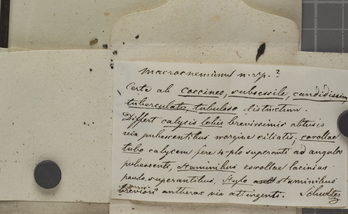 macrocneminus n. sp. ?
Certe ab coccineo, subsessile, candidissim
tuberculato, tubuloso distinctum.
Differt calycis lobis brevissimis obtusis
pubescentibus margine ciliatis, corollae
tubo calycem fere 4-plo superante ad angulos
pubescente, staminibus corollae lacinias
paulo superantibus. Stylo staminibus
antheras vix attingente. Schultes